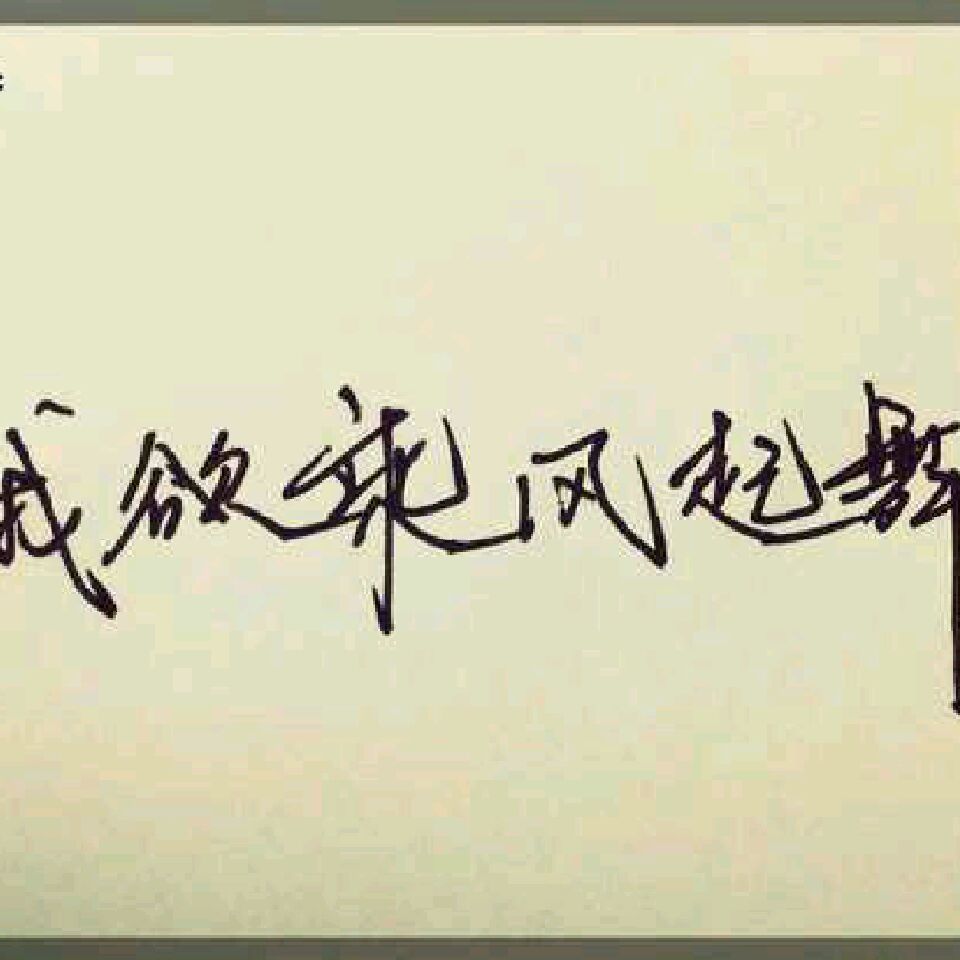 我欲乘风起